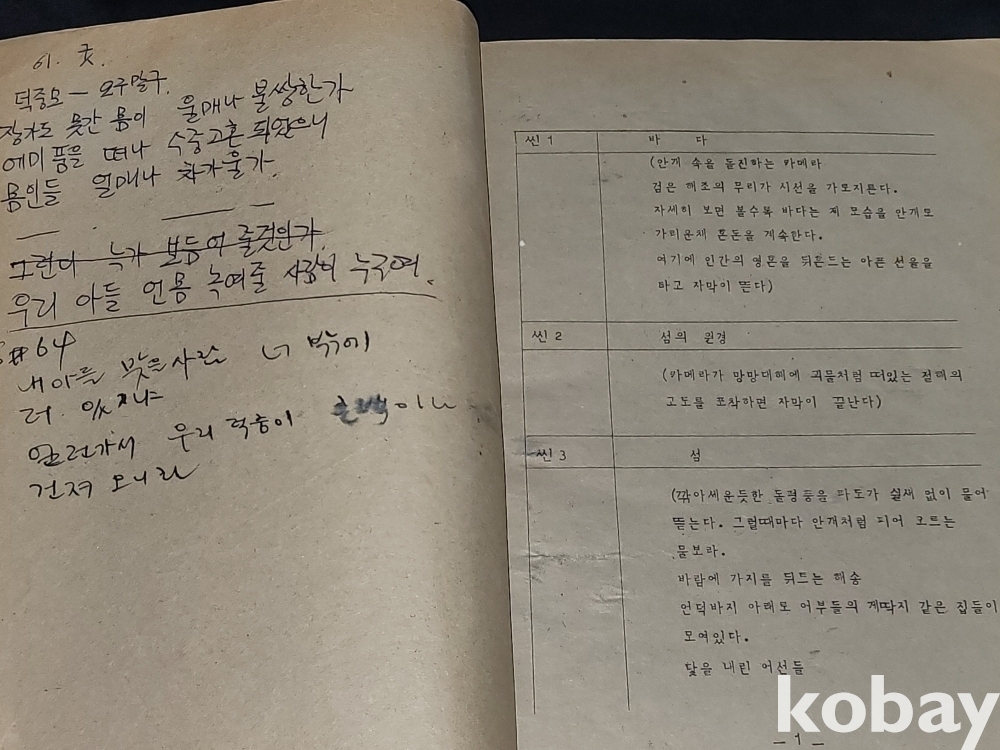 61. 호.
덕중모 - 요구말구.
장가도 못간 몸이 울매나 불쌍한가
에미 품을 떠나 수중고혼 되었으니
몸인들 얼매나 차가울가.
그런다 누가 보듬어 줄것인가.
우리 아들 언몸 녹여줄 사람이 누구여.
#64
내아들 사람 너 밖에
더 있지냐
우리 덕중이 혼백이나
건져 오니라
씬 1 바 다
(안개 속을 돌진하는 카메라
검은 해조의 무리가 시선을 가로지른다.
자세히 보면 볼수록 바다는 제 모습을 안개로
가리운채 혼돈을 계속한다.
여기에 인간의 영혼을 뒤흔드는 아픈 선율을
타고 자막이 뜬다)
씬 2 섬의 원경
(카메라가 망망대해에 괴물처럼 떠있는 절해의
고도를 포착하면 자막이 끝난다)
씬 3 섬
(깎아세운듯한 돌령등을 파도가 쉴새 없이 물어
뜯는다. 그럴때마다 안개처럼 피어 오르는
물보라.
바람에 가지를 뒤트는 해송
언덕바지 아래로 어부들의 게딱지 같은 집들이
모여있다.
닻을 내린 어선들
- 1 -
kobay